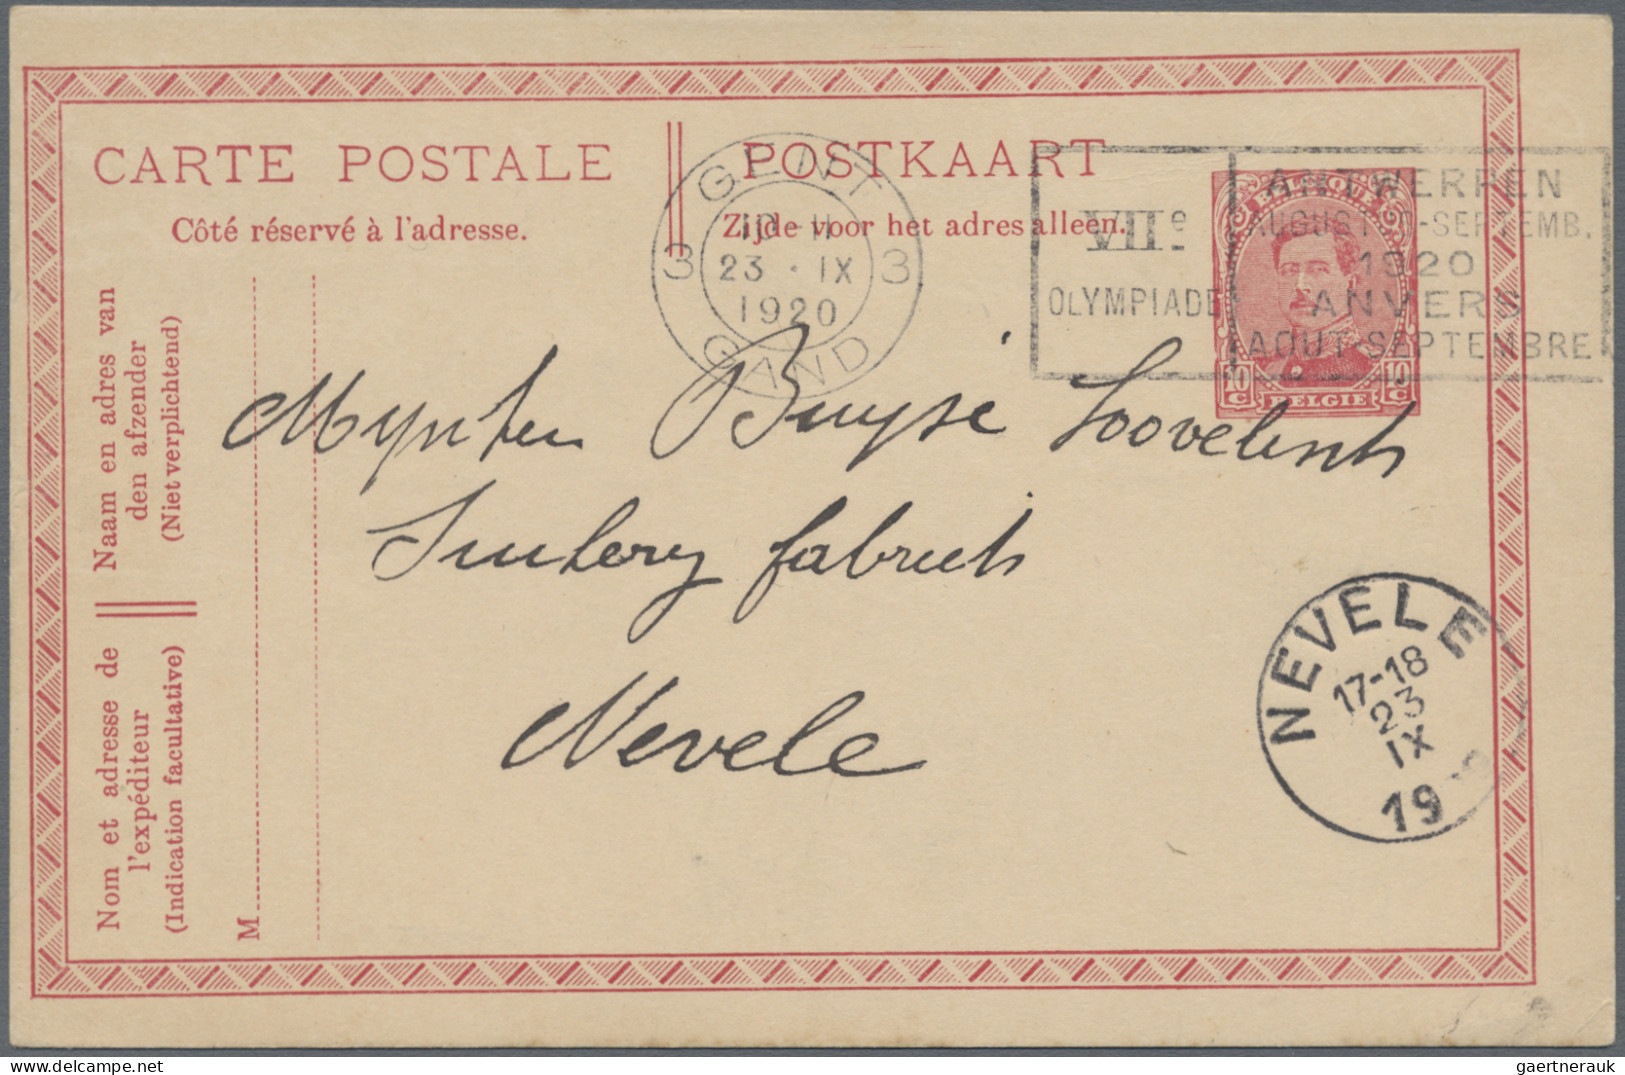 CARTE POSTALE
POSTKAART
Côté réservé à l'adresse.
Zijde voor het adres alleen.
GENT
10-11
3 23 · IX 3
1920
GAND
VIIe
OLYMPIADE
ANTWERPEN
AUGUST-SEPTEMB.
1920
ANVERS
AOUT-SEPTEMBRE
BELGIQUE
10 c 10 c
BELGIE
Naam en adres van
den afzender
(Niet verplichtend)
Nom et adresse de
l'expéditeur
(Indication facultative)
M
Buysse
fabriek
Nevele
NEVELE
17-18
23
IX
19
gaertnerauk